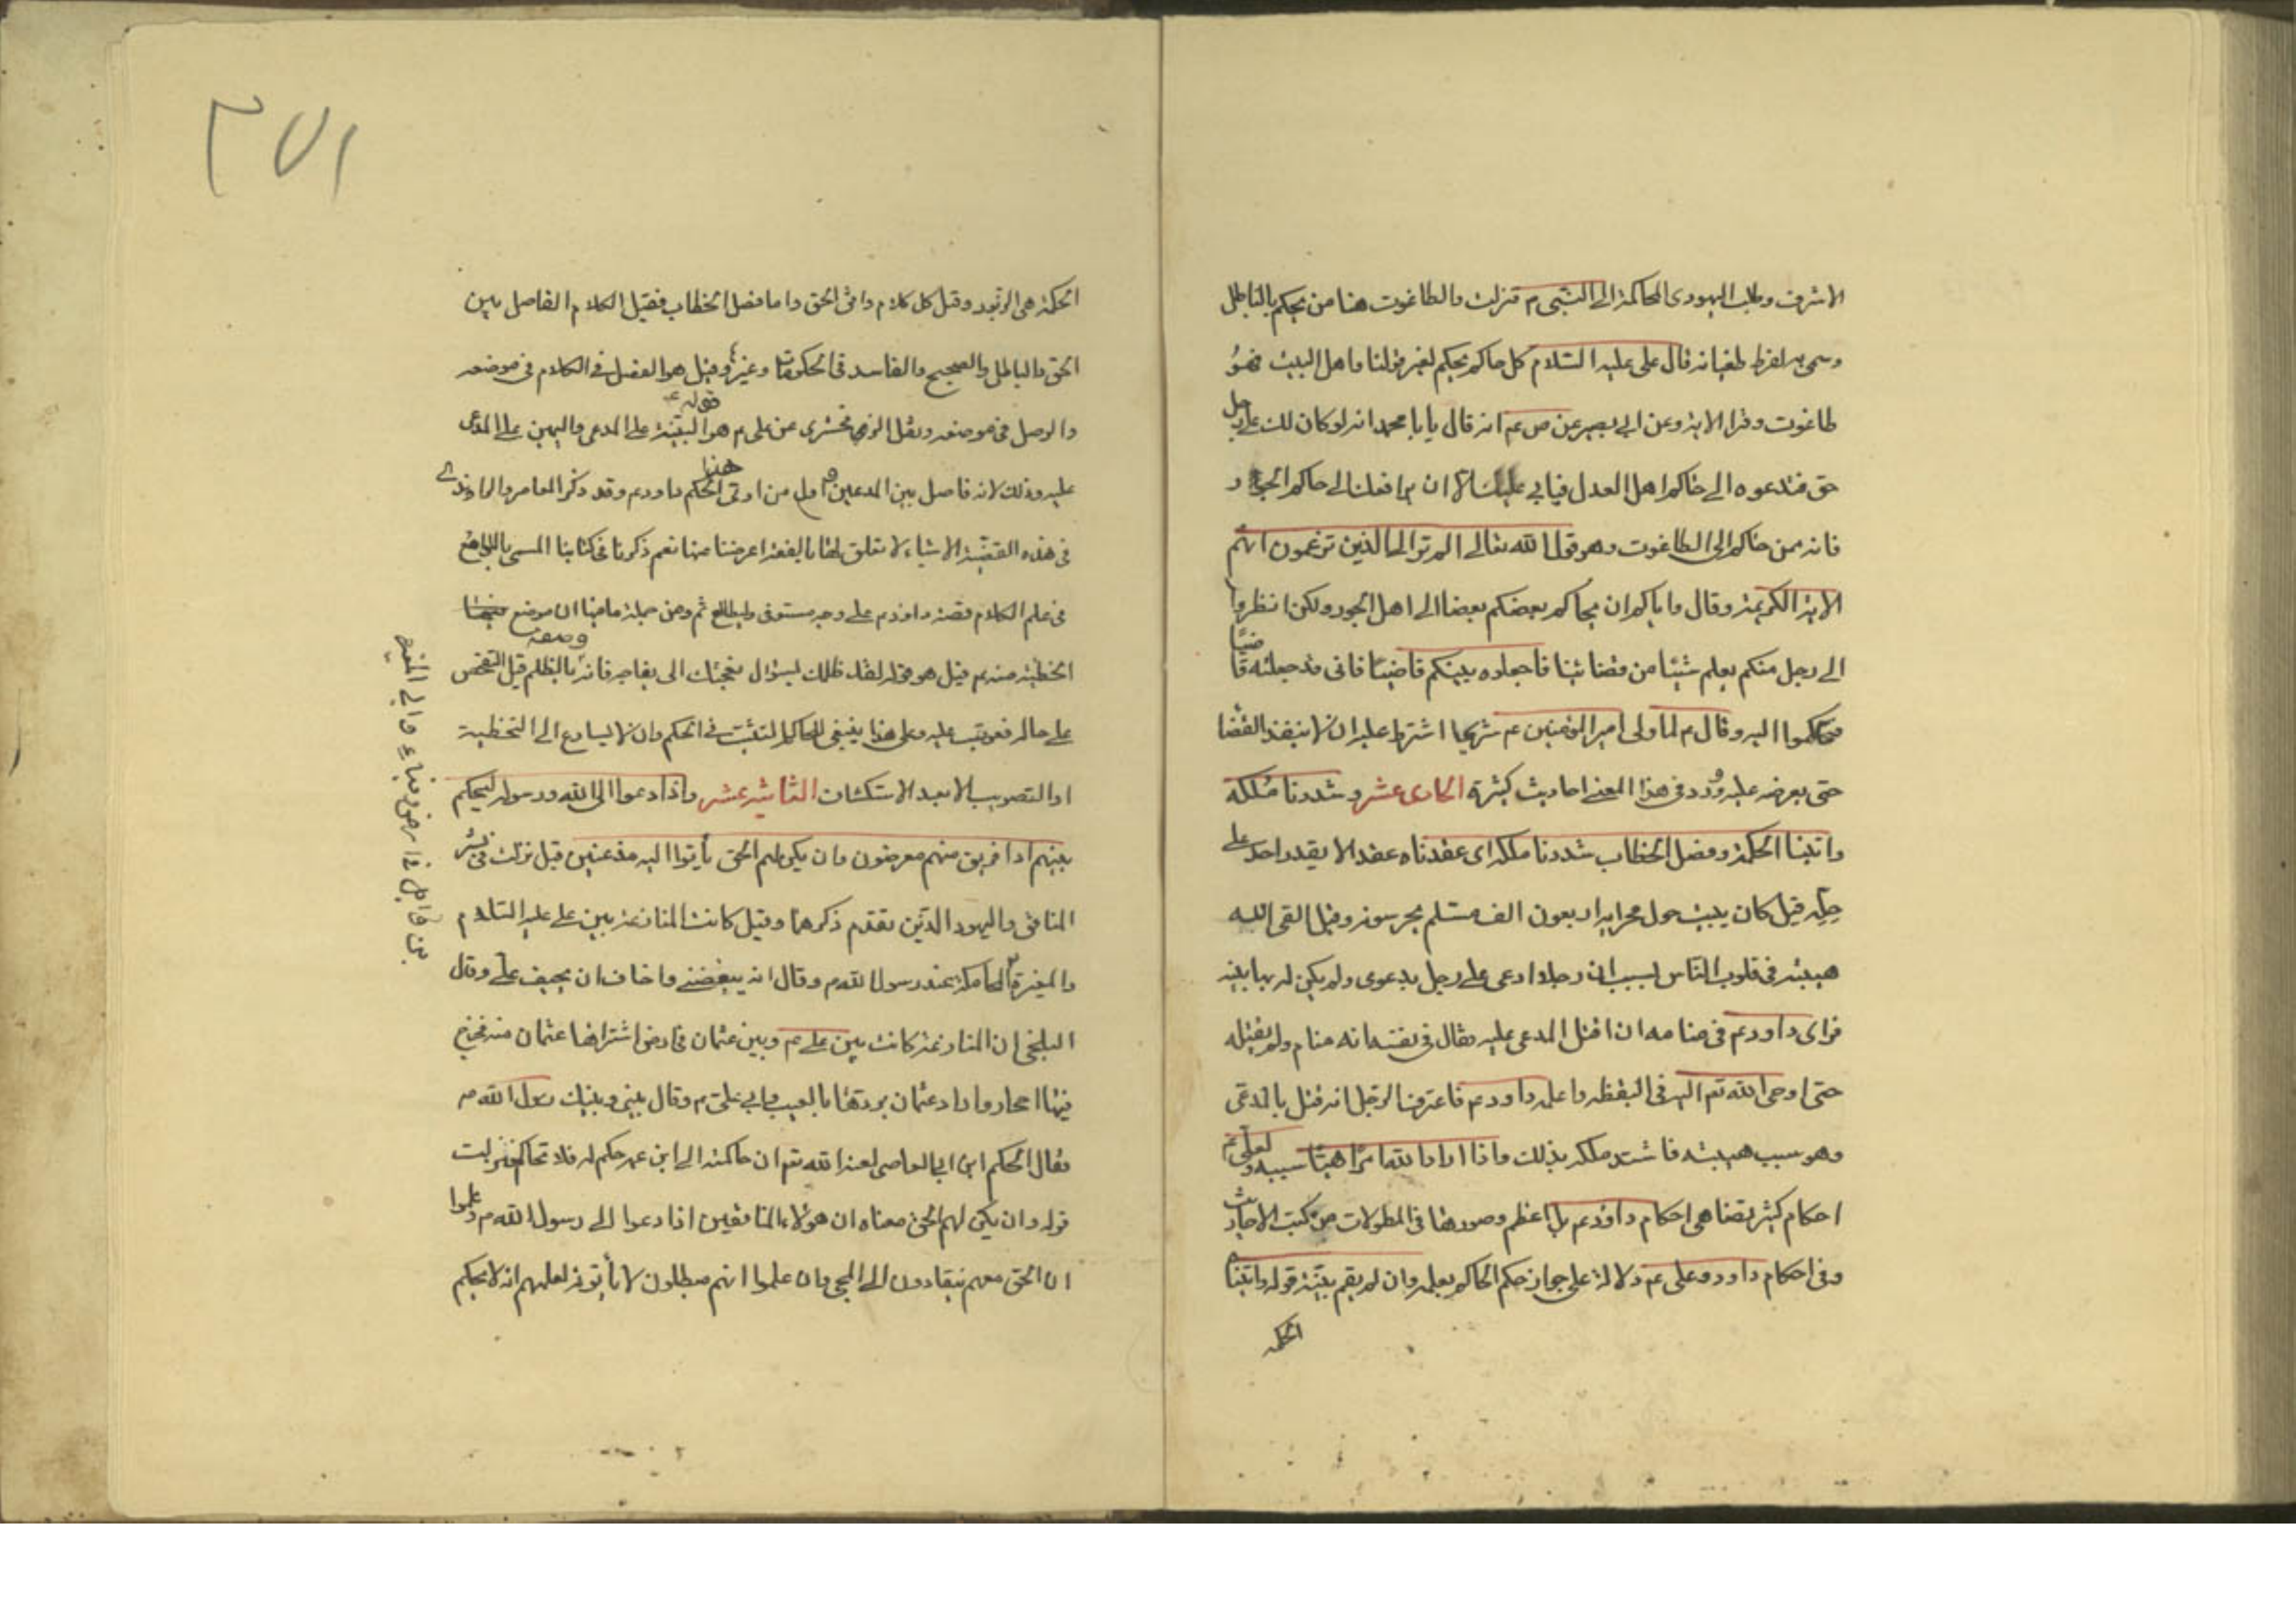 الاشرف وطلب اليهودى المحاكمة الى النبى م فنزلت والطاغوت هنا من يحكم بالباطل
وسمى به لفرط طغيانه قال على عليه السلام كل حاكم يحكم بغير قولنا اهل البيت فهو
طاغوت وقرا الاية وعن ابي بصير عن ص عم انه قال يا با محمد انه لو كان لك على رجل
حق فتدعوه الى حاكم اهل العدل فيابى عليك الا ان يرافعك الى حاكم الجور
فانه ممن حاكم الى الطاغوت وهو قول الله تعالى المر تر الى الذين تزعمون انهم
الاية الكريمة وقال واياكم ان يحاكم بعضكم بعضا الى اهل الجور ولكن انظروا
الى رجل منكم يعلم شيئا من قضائنا فاجعلوه بينكم قاضيا فانى قد جعلته قاضيا
فتحاكموا اليه وقال م لما ولى امير المؤمنين عم شريحا اشترط عليه ان لا ينفذ القضا
حتى يعرضه عليه وورد فى هذا المعنى احاديث كثيرة الحادى عشر وشددنا ملكه
واتينا الحكمة وفصل الخطاب شددنا ملكه اى عقدناه عقدا لا يقدر احد على
حله قيل كان يبيت حول محرابه اربعون الف مستلم يحرسونه وقيل القى الله
هيبته فى قلوب الناس بسبب ان رجلا ادعى على رجل بدعوى ولم يكن له بها بينة
فراى داود عم فى منامه ان اقتل المدعى عليه فقال فى نفسه انه منام ولم يقتله
حتى اوحى الله تعم اليه فى اليقظة واعلمه داود عم فاعترف الرجل انه قتل با المدعى
وهو سبب هيبته فاشتد ملكه بذلك واذا اراد الله امرا هيا سببه ولعلى عم
احكام كثير تضاهى احكام داود عم بل اعظم وصورها فى المطولات من كتب الاحاديث
وفى احكام داود وعلى عم دلالة على جواز حكم الحاكم بعلمه وان لم يقم بينة قوله واتينا
الحكمة
٢٧١
الحكمة هى الزبور وقيل كل كلام وافق الحق واما فصل الخطاب فقيل الكلام الفاصل بين
الحق والباطل والصحيح والفاسد فى الحكومات وغيرها وقيل هو الفصل فى الكلام فى موضعه
والوصل فى موضعه ونقل الزمخشرى عن على م هو قوله البينة على المدعى واليمين على المدعى
عليه وذلك لانه فاصل بين المدعين واول من اوتى هذا الحكم داود عم وقد ذكر المعاصر والراوندى
فى هذه القضية الاشياء لا تعلق لها بالفقه اعرضنا عنها نعم ذكرنا فى كتابنا المسمى باللوامع
فى علم الكلام قصة داود م على وجه مستوفى فليطالع ثم ومن جملة ما فيها ان موضع
الخطيئة منه م قيل هو قوله لقد ظلمك بسؤال نعجتك الى نعاجه فانه وصفه بالظلم قبل التفحص
على حاله فعوتب عليه وعلى هذا ينبغى للحاكم التثبت فى الحكم وان لا يسارع الى التخطية
او التصويب الا بعد الاستكشاف الثانى عشر واذا دعوا الى الله ورسوله ليحكم
بينهم اذا فريق منهم معرضون وان يكن لهم الحق يأتوا اليه مذعنين قيل نزلت فى بشر
المنافق واليهود الذين تقدم ذكرهما وقيل كانت المنازعة بين على عليه السلام
والمغيرة المحاكمة عند رسول الله م وقال انه يبغضنى واخاف ان يحيف على وقال
البلخى ان المنازعة كانت بين على عم وبين عثمان فى ارض اشتراها عثمان منه فخرج
فيها احجار واراد عثمان يردها بالعيب وابى على م وقال بينى وبينك رسول الله م
فقال الحكم ابن ابى العاصى لعنه الله تعم ان حاكمته الى ابن عمه حكم له فلا تحاكمه فنزلت
قوله وان يكن لهم الحق معناه ان هؤلاء المنافقين اذا دعوا الى رسول الله م وعلموا
ان الحق معهم ينقادون الى المجى وان علموا انهم مبطلون لا يأتونه لعلمهم انه لا يحكم